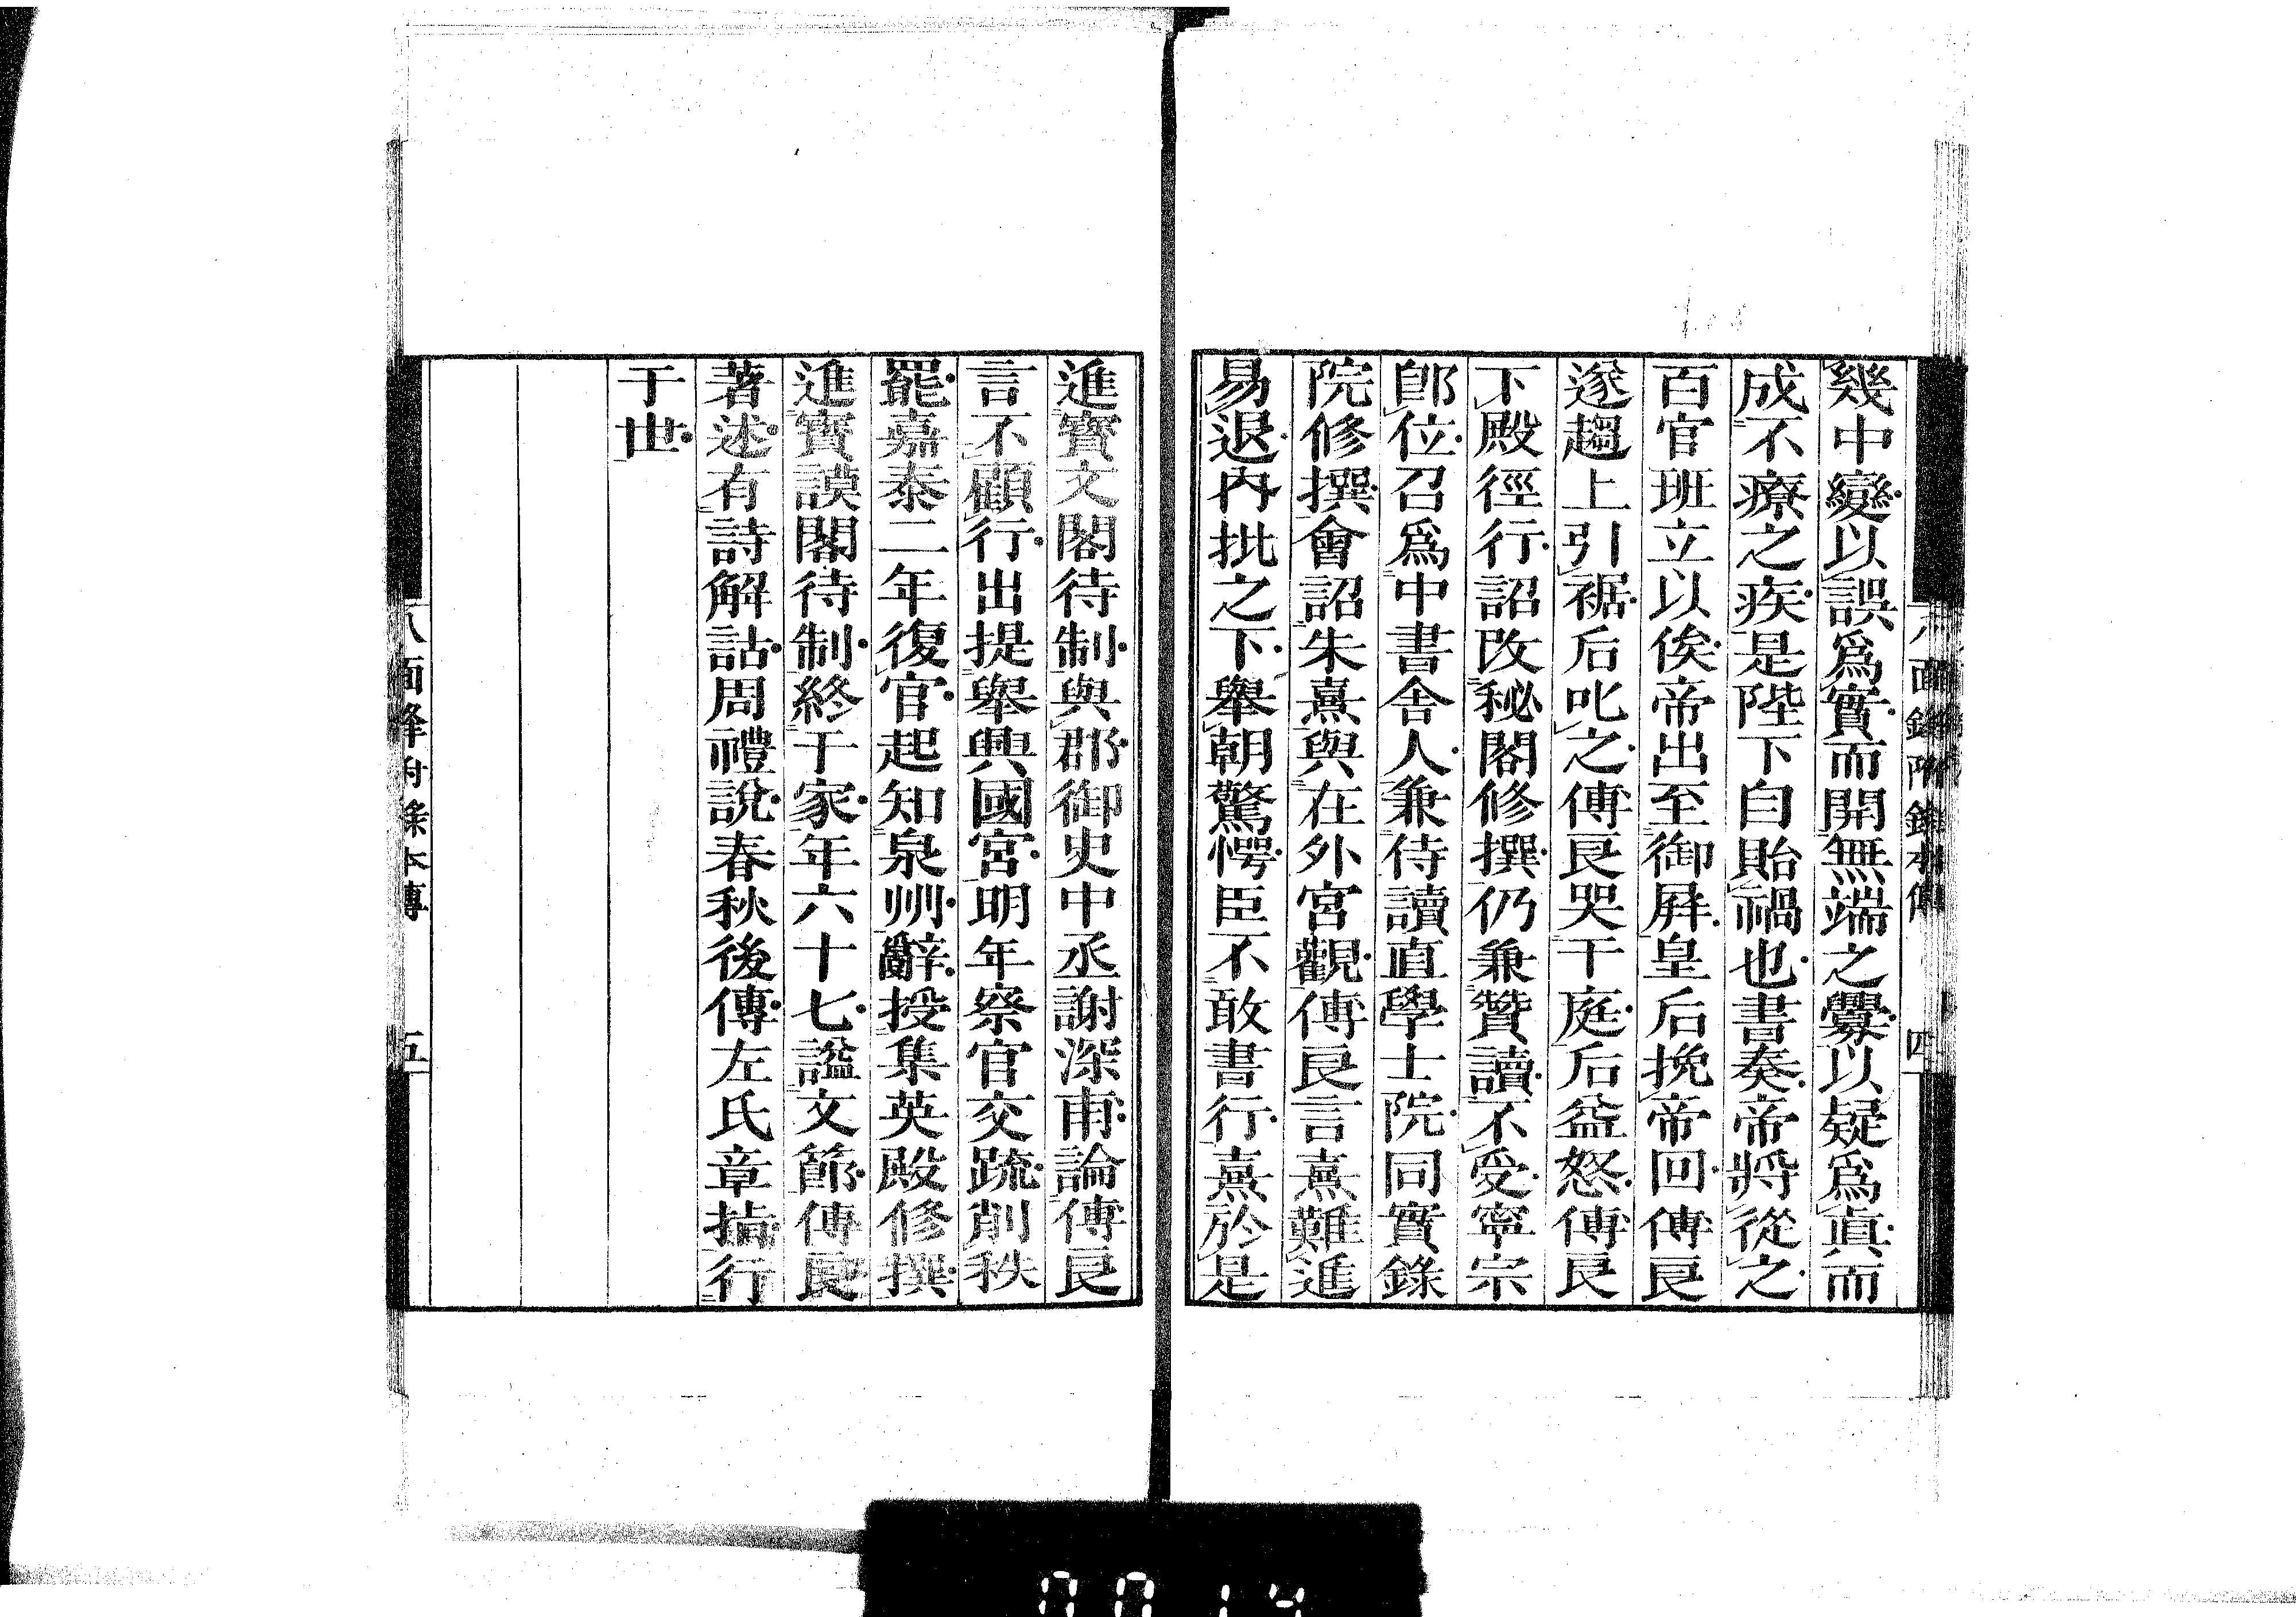 八面鋒附錄本傳 四
幾中變以誤爲實而開無端之釁以疑爲眞而
成不療之疾是陛下自貽禍也書奏帝將從之
百官班立以俟帝出至御屛皇后挽帝回傅良
遂趨上引裾后叱之傅良哭于庭后益怒傅良
下殿徑行詔改秘閣修撰仍兼贊讀不受寧宗
卽位召爲中書舍人兼侍讀直學士院同實錄
院修撰會詔朱熹與在外宮觀傅良言熹難進
易退內批之下舉朝驚愕臣不敢書行熹於是
進寶文閣待制與郡御史中丞謝深甫論傅良
言不顧行出提舉興國宮明年察官交疏削秩
罷嘉泰二年復官起知泉州辭授集英殿修撰
進寶謨閣待制終于家年六十七諡文節傅良
著述有詩解詁周禮說春秋後傳左氏章指行
于世
八面鋒附錄本傳 五
0014